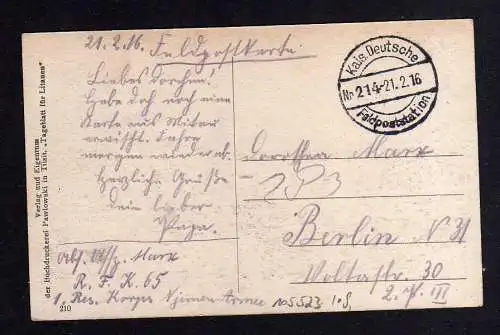 21.2.16. Feldpostkarte.
Liebes Dorchen!
Habe doch noch eine
Karte aus Mitau
erwischt. Fahre
morgen wieder ab.
Herzliche Grüße
dein lieber
Papa.
Abs. Uffz. Marx
R. F. K. 65
1. Res. Korps Njemen-Armee
210
Verlag und Eigentum
der Buchdruckerei Pawlowski in Tilsit, „Tageblatt für Litauen"
Kais. Deutsche
Nr 214-21.2.16
Feldpoststation
Dorothea Marx
Berlin N 31
Voltastr. 30
2. P. III